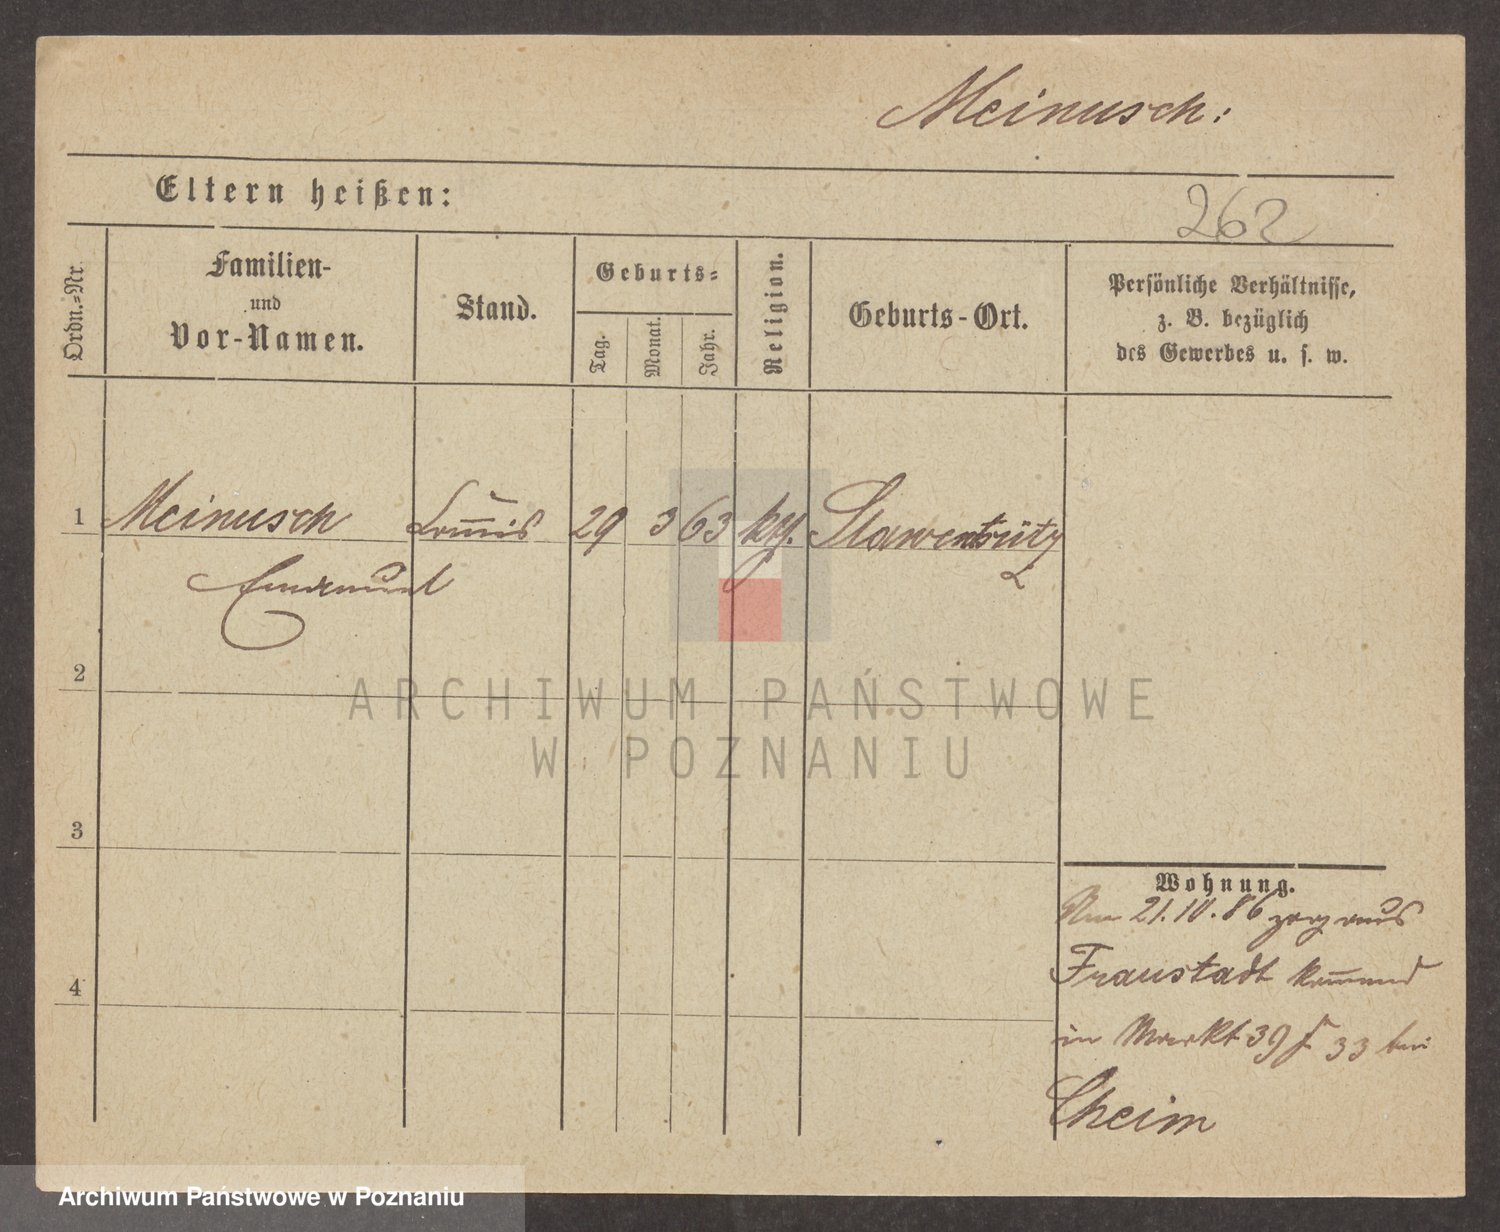 Meinusch:
Eltern heißen:
262
Ordn.-Nr.
Familien-
und
Vor-Namen.
Stand.
Geburts-
Tag.
Monat.
Jahr.
Religion.
Geburts-Ort.
Persönliche Verhältnisse,
z. B. bezüglich
des Gewerbes u. s. w.
1 Meinusch 29 3 63 kth.
Emanuel
2
ARCHIWUM PAŃSTWOWE
W POZNANIU
3
Wohnung.
Am 21.10.86 zog aus
Fraustadt kommend
in Markt 39 33 bei
Cheim
4
Archiwum Państwowe w Poznaniu